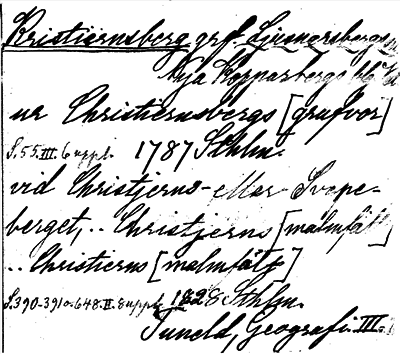 Kristiernsberg grf. Ljusnarsbergs
Nya Kopparbergs bl.
ur Christiernsbergs [grufvor]
S. 55. III. 6 uppl. 1787 Sthlm.
vid Christjerns- eller Svepe-
berget, .. Christjerns [malmfält]
.. Christierns [malmfält]
S. 390-391 o. 648. II. 8 uppl. 1828 Sthlm.
Tuneld, Geografi III.